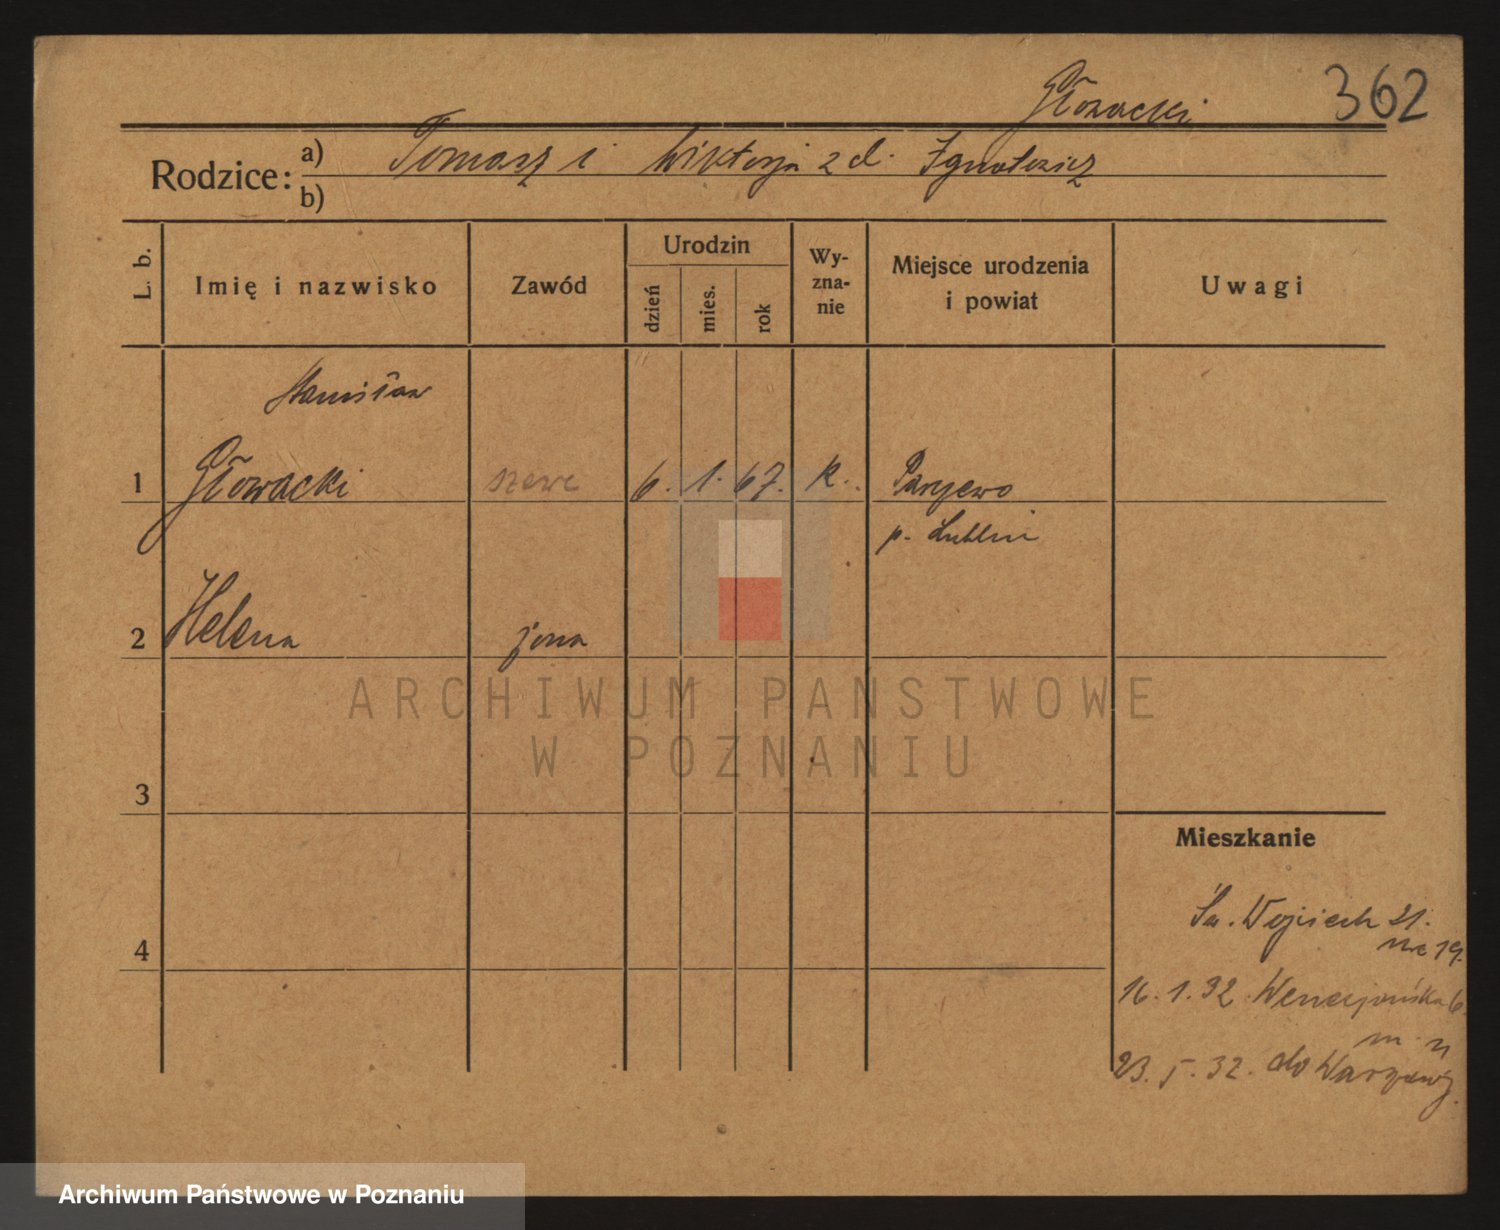 Głowacki 362
Rodzice: a) Tomasz i Wiktorja z d. Ignatowicz
b)
L. b. Imię i nazwisko Zawód Urodzin dzień mies. rok Wy-zna-nie Miejsce urodzenia i powiat Uwagi
Stanisław
1 Głowacki szewc 6. 1. 67. k. Parysewo
p. Lublin
2 Helena żona
ARCHIWUM PAŃSTWOWE
W POZNANIU
3
Mieszkanie
Św. Wojciech 21.
4
16.1.32 Wenecjańska 6
23.5.32. do Warszawy.
Archiwum Państwowe w Poznaniu